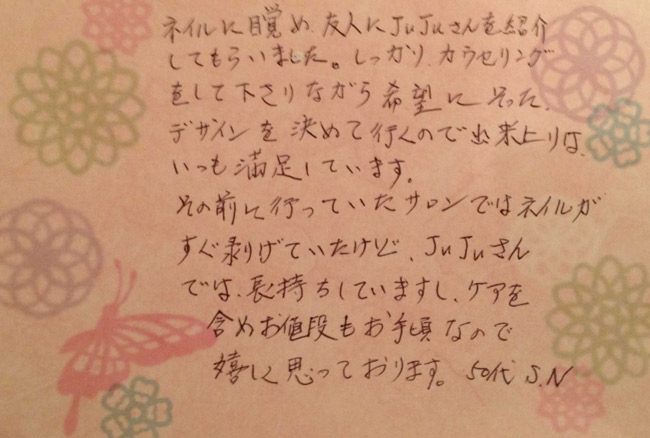 ネイルに目覚め、友人にJuJuさんを紹介
してもらいました。しっかり、カウセリング
をして下さりながら希望にそった、
デザインを決めて行くので出来上りは、
いつも満足しています。
その前に行っていたサロンではネイルが
すぐ剥げていたけど、JuJuさん
では、長持ちしていますし、ケアを
含めお値段もお手頃なので
嬉しく思っております。50代 S.N